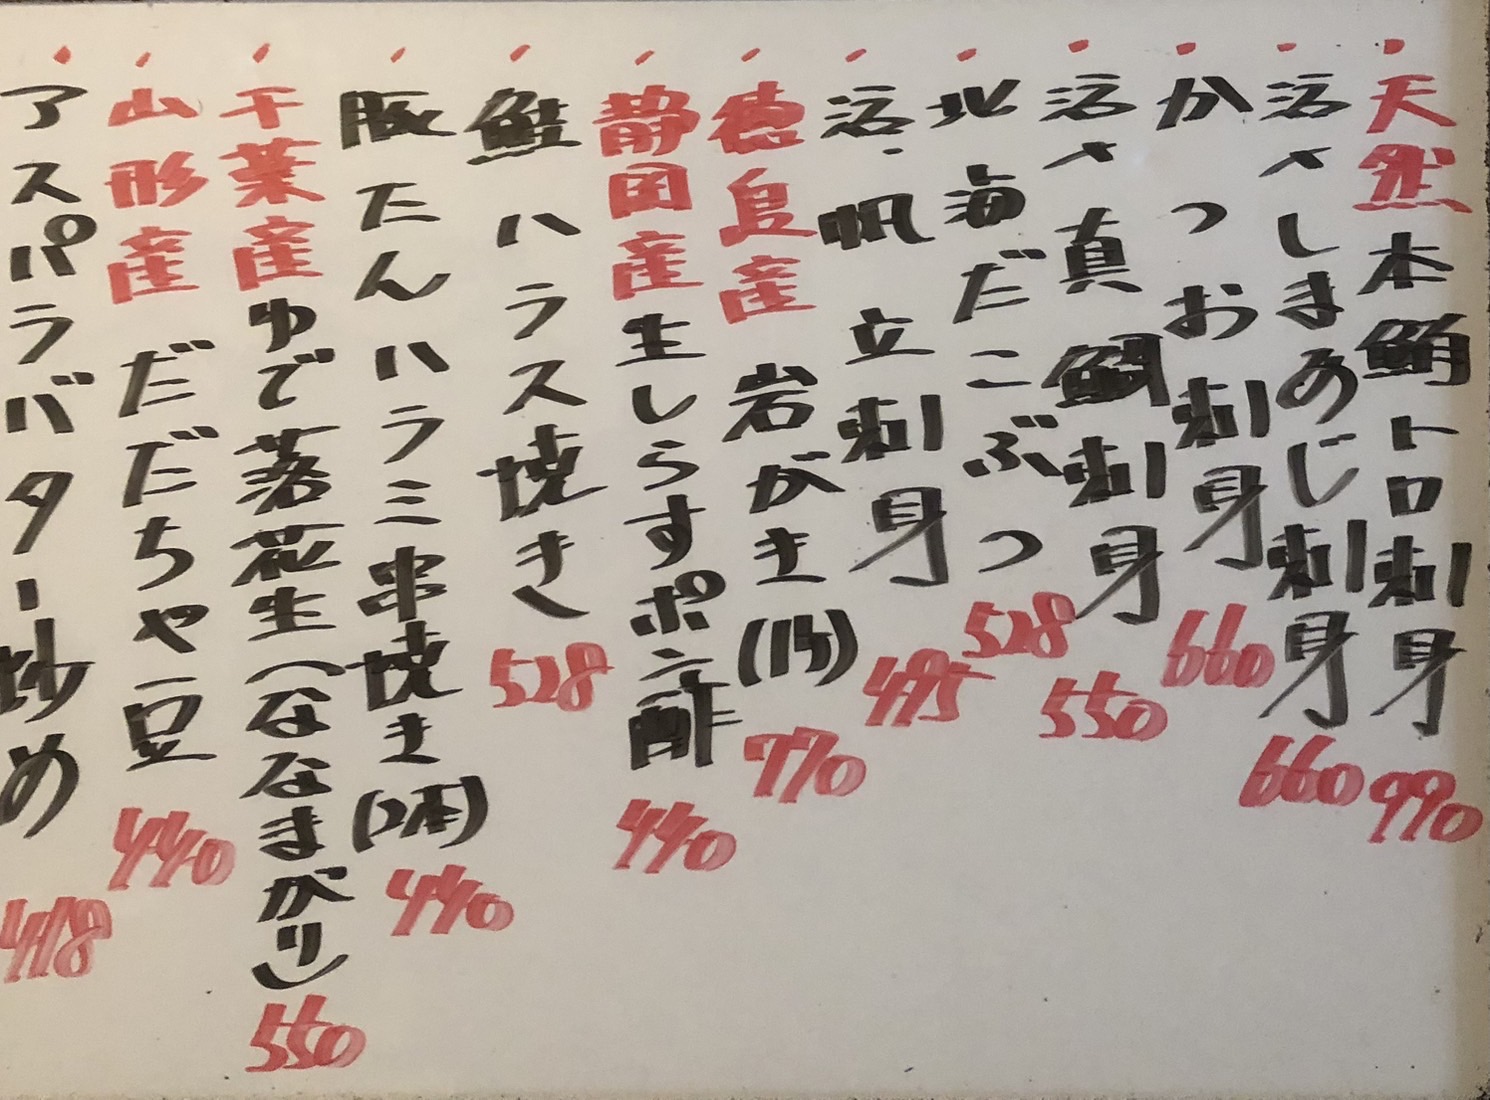 ・天然本鮪トロ刺身 990
・活〆しまあじ刺身 660
・かつお刺身 660
・活〆真鯛刺身 550
・北海だこぶつ 528
・活・帆立刺身 495
・徳島産岩がき(1ヶ) 770
・静岡産生しらすポン酢 440
・鮭ハラス焼き 528
・豚たんハラミ串焼き(2本) 440
・千葉産ゆで落花生(ななまがり) 550
・山形産だだちゃ豆 440
・アスパラバター炒め 418